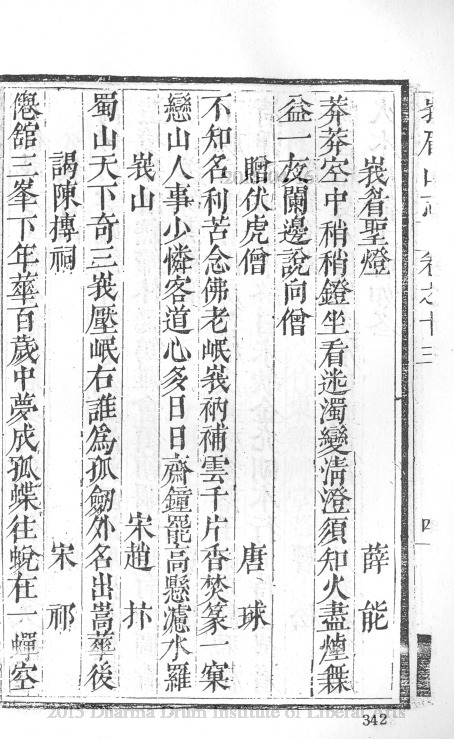 峩眉山志 卷之十三 四
峩眉聖燈 薛能
莽莽空中稍稍鐙坐看迷濁變清澄須知火盡煙無
益一夜闌邊說向僧
贈伏虎僧 唐球
不知名利苦念佛老岷峩衲補雲千片香焚篆一窠
戀山人事少憐客道心多日日齋鐘罷高懸濾水羅
峩山 宋趙抃
蜀山天下奇三峩壓岷右誰為孤劒外名出嵩華後
謁陳摶祠 宋祁
僊舘三峯下年華百歲中夢成孤蝶往蛻在一蟬空
2013 Dharma Drum Institute of Liberal Arts
342